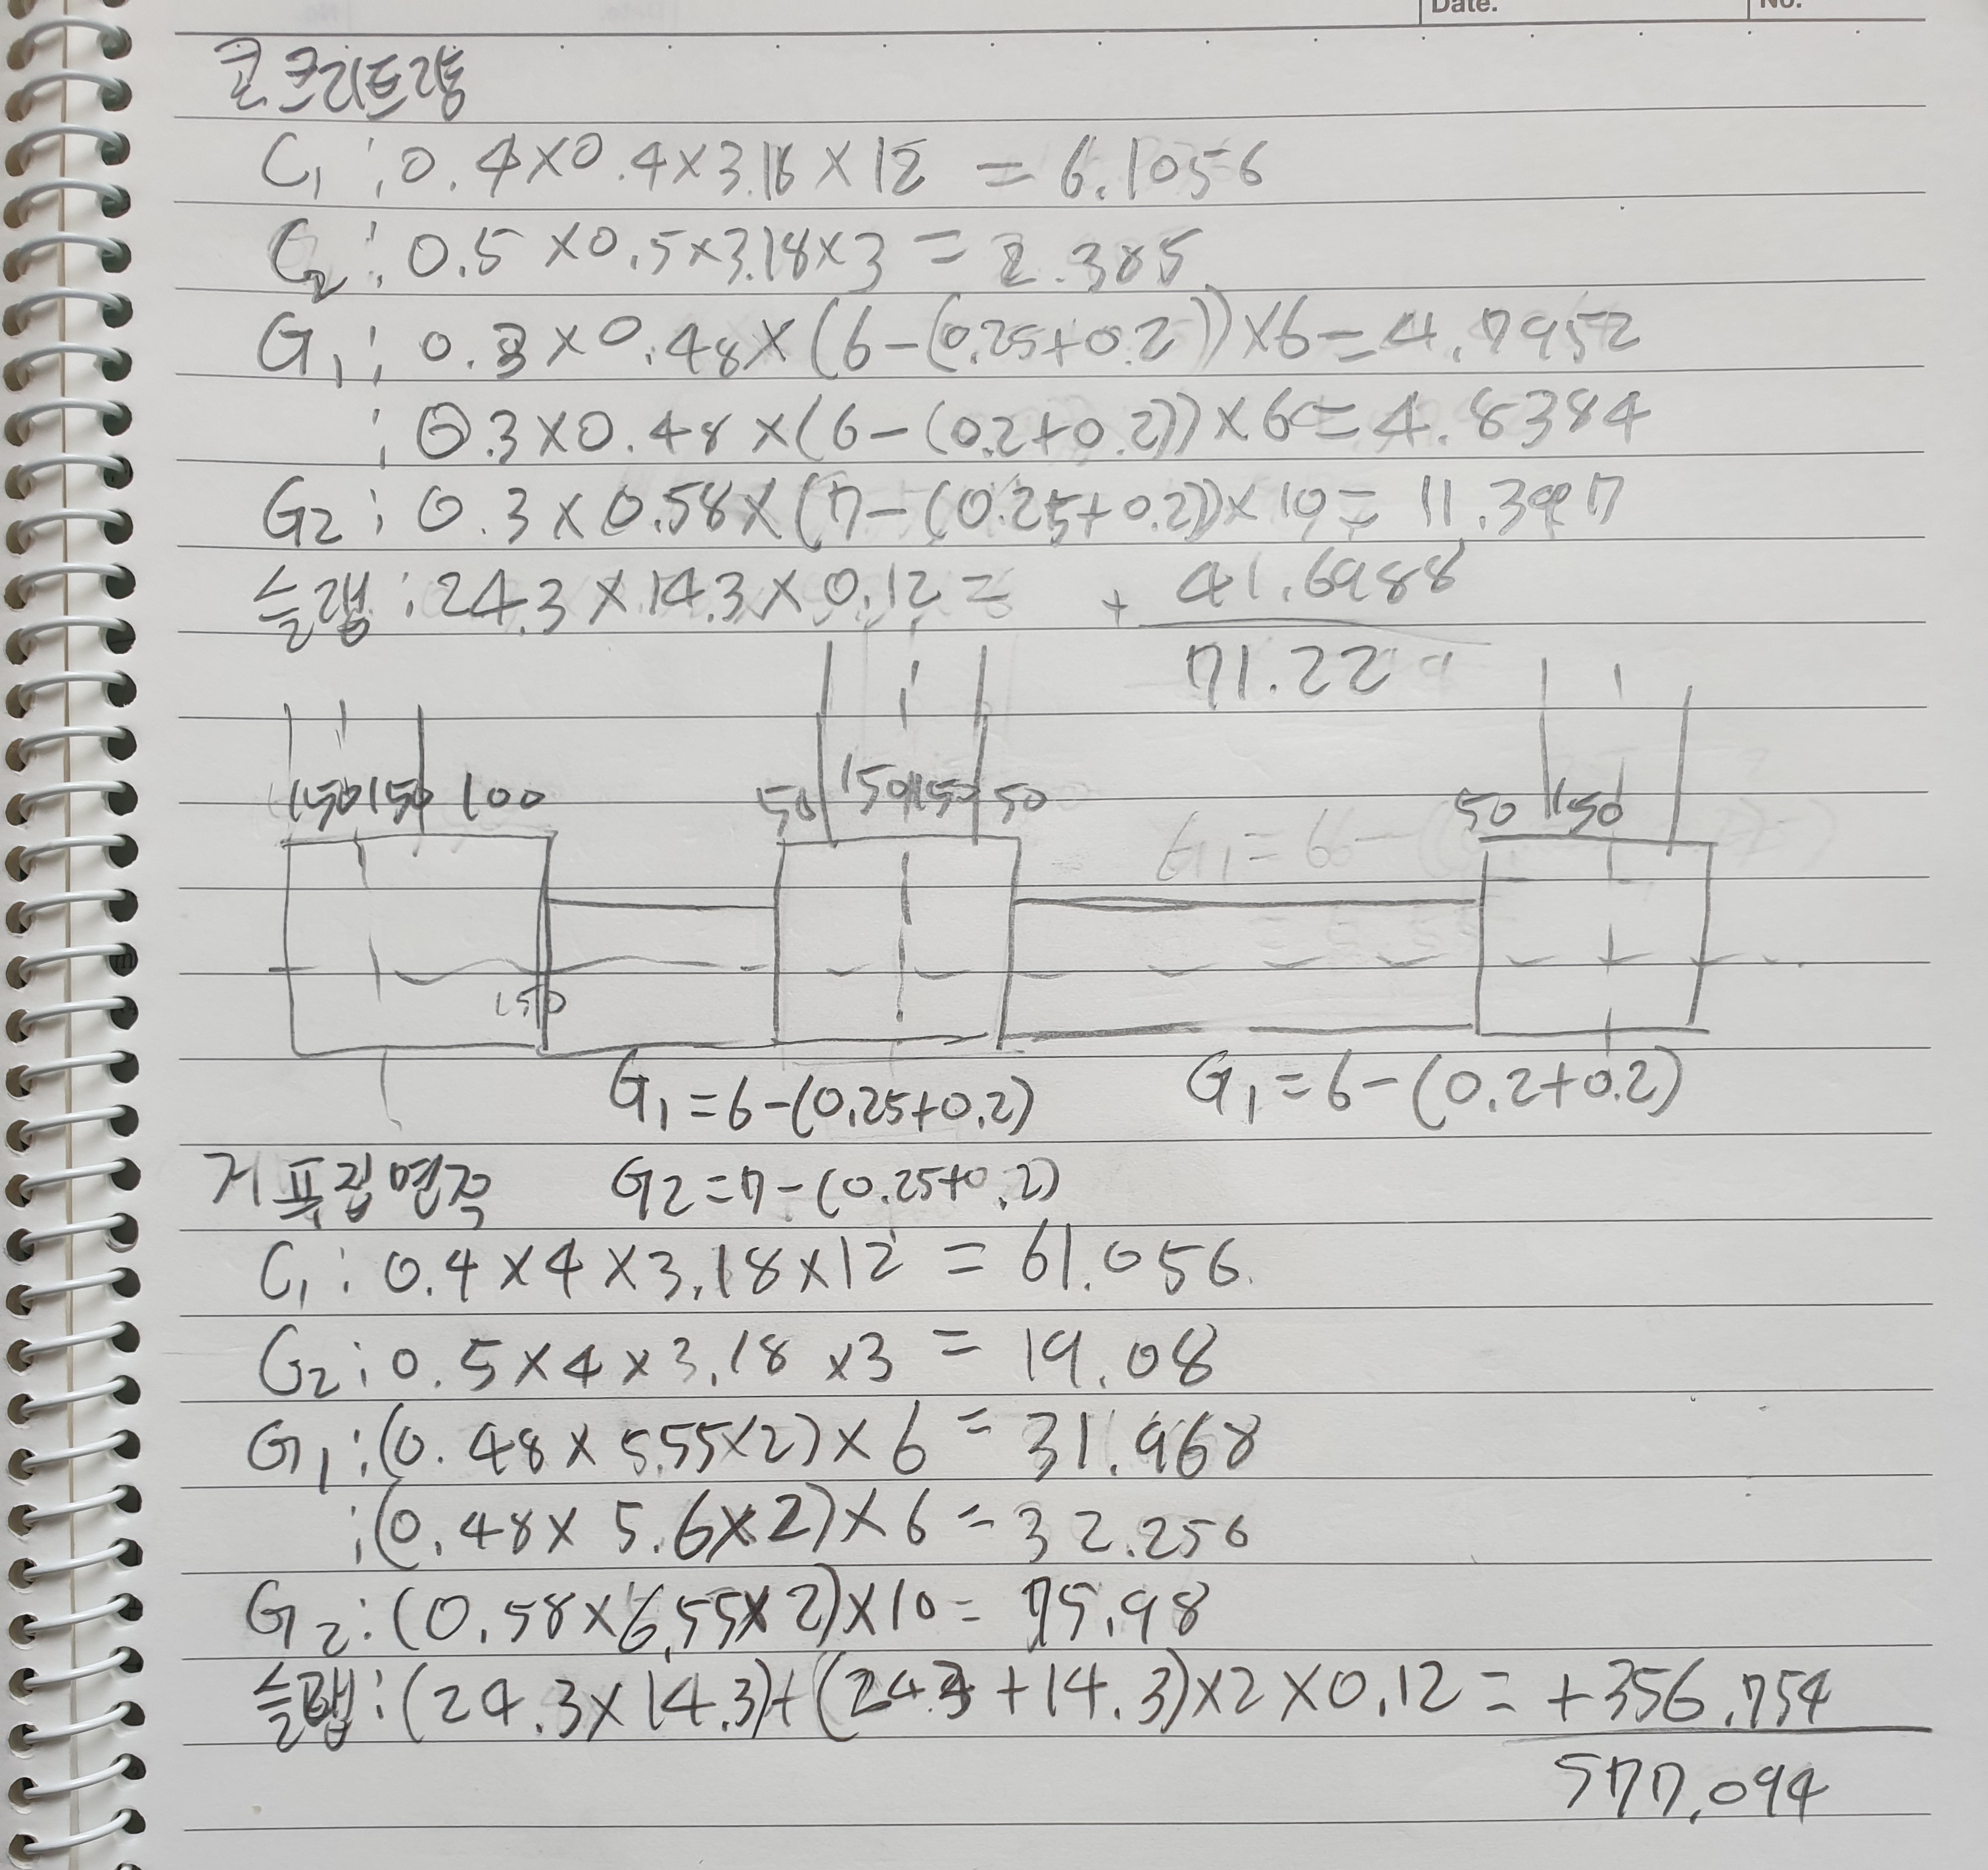 Date. No.
콘크리트량
C₁ : 0.4×0.4×3.18×12 = 6.1056
C₂ : 0.5×0.5×3.18×3 = 2.385
G₁ : 0.3×0.48×(6-(0.25+0.2))×6=4.7952
: 0.3×0.48×(6-(0.2+0.2))×6=4.8384
G₂ : 0.3×0.58×(7-(0.25+0.2))×10= 11.397
슬랩 : 24.3×14.3×0.12= + 41.6988
71.22
150 150 100 50 150 150 50 50 150
150
G₁=6-(0.25+0.2) G₁=6-(0.2+0.2)
거푸집면적 G₂=7-(0.25+0.2)
C₁ : 0.4×4×3.18×12 = 61.056
C₂ : 0.5×4×3.18×3 = 19.08
G₁ : (0.48×5.55×2)×6 = 31.968
: (0.48×5.6×2)×6 = 32.256
G₂ : (0.58×6.55×2)×10= 75.98
슬랩 : (24.3×14.3)+(24.3+14.3)×2×0.12= +356.754
577.094